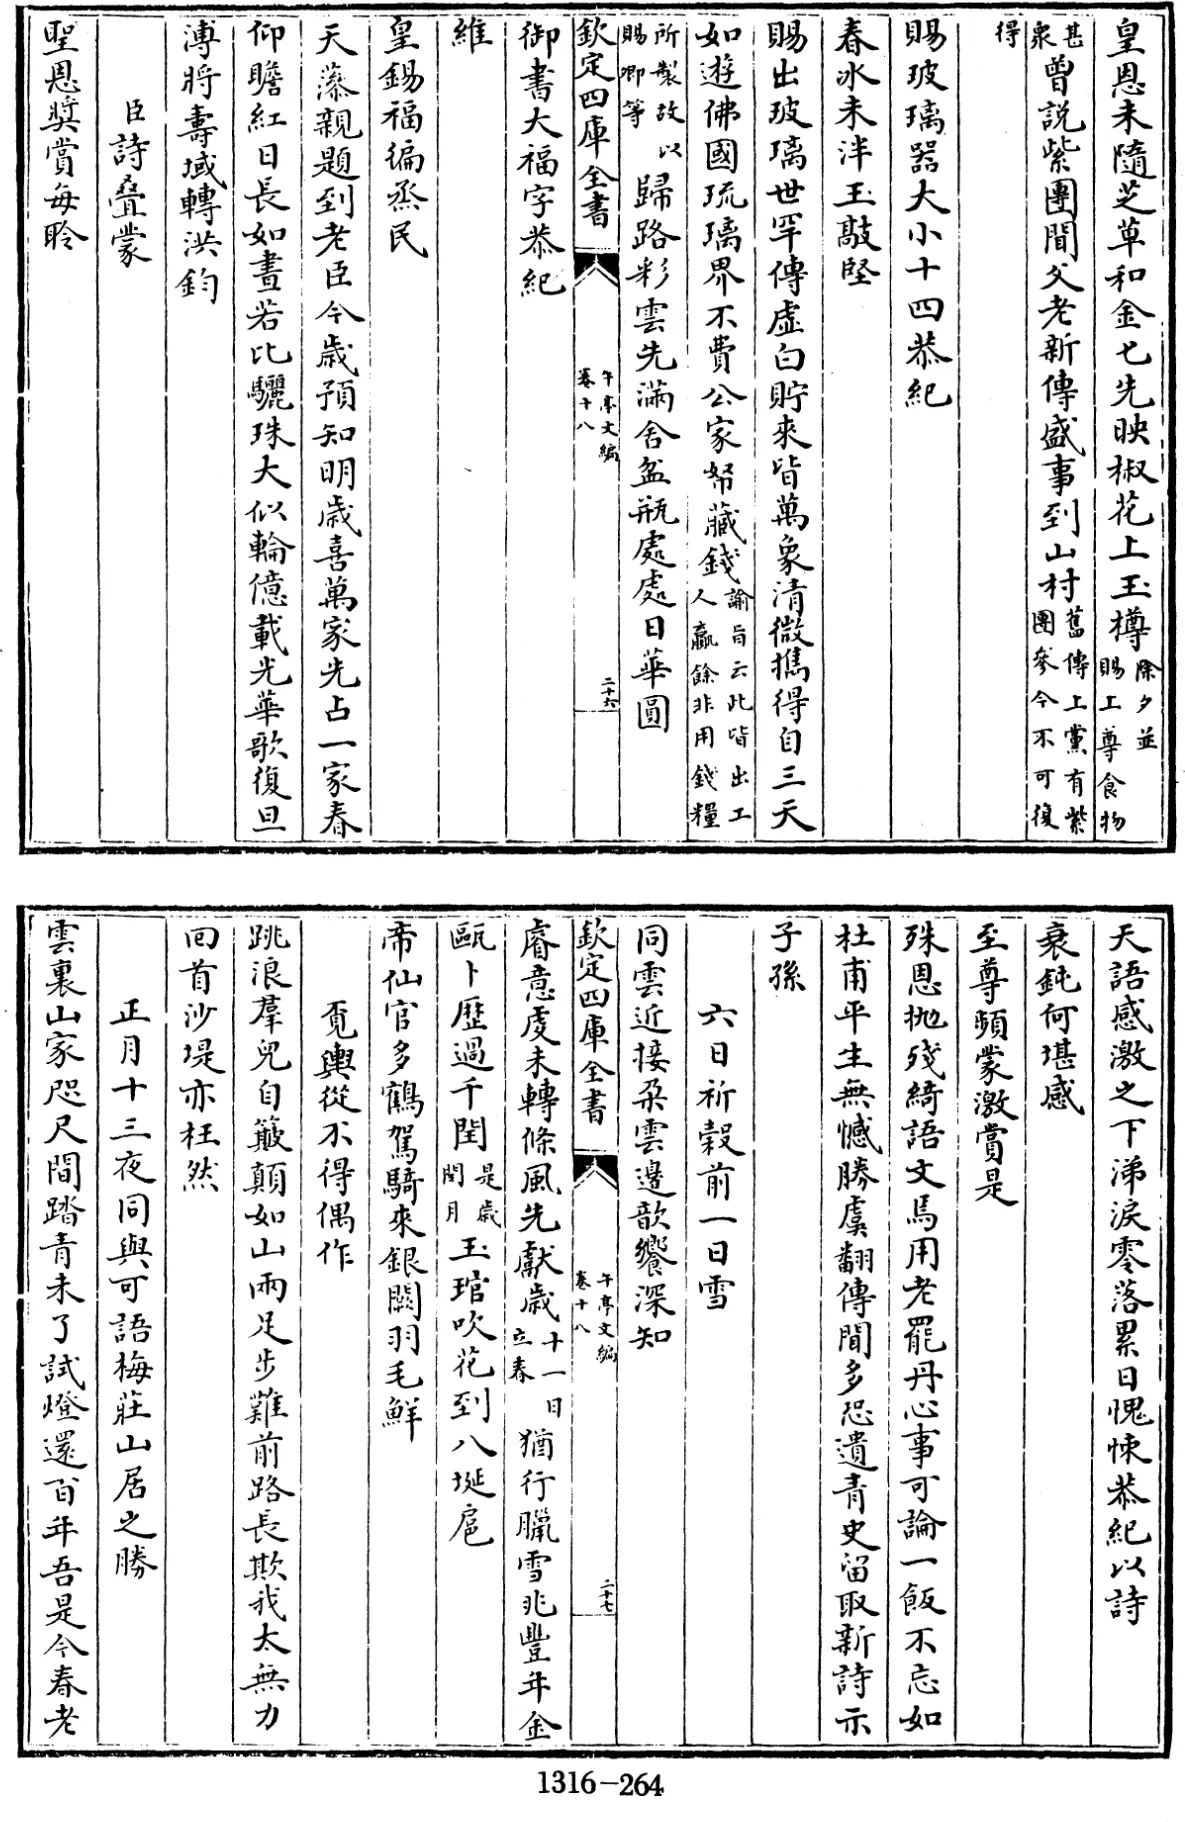 皇恩未隨芝草和金七先映椒花上玉樽除夕並賜上尊食物
甚衆曾説紫團間父老新傳盛事到山村舊傳上黨有紫團參今不可復
得
賜玻璃器大小十四恭紀
春冰未泮玉敲堅
賜出玻璃世罕傳虛白貯來皆萬象清微攜得自三天
如遊佛國琉璃界不費公家帑藏錢諭旨云此皆出工人贏餘非用錢糧
所製故以賜卿等歸路彩雲先滿舍盆瓶處處日華圓
欽定四庫全書
午亭文編
卷十八
二十六
御書大福字恭紀
維
皇錫福徧烝民
天藻親題到老臣今歲預知明歲喜萬家先占一家春
仰瞻紅日長如晝若比驪珠大似輪億載光華歌復旦
溥將壽域轉洪鈞
臣詩疊蒙
聖恩奬賞每聆
天語感激之下涕淚零落累日愧悚恭紀以詩
衰鈍何堪感
至尊頻蒙激賞是
殊恩抛殘綺語文焉用老罷丹心事可論一飯不忘如
杜甫平生無憾勝虞翻傳聞多恐遺青史留取新詩示
子孫
六日祈穀前一日雪
同雲近接朶雲邊歆饗深知
欽定四庫全書
午亭文編
卷十八
二十七
睿意䖍未轉條風先獻歲十一日立春猶行臘雪兆豐年金
甌卜歷過千閏是歲閏月玉琯吹花到八埏扈
帝仙官多鶴駕騎來銀闕羽毛鮮
覓輿從不得偶作
跳浪羣兒自簸顛如山兩足步難前路長欺我太無力
囘首沙堤亦枉然
正月十三夜同與可語梅莊山居之勝
雲裏山家咫尺間踏青未了試燈還百年吾是今春老
1316-264